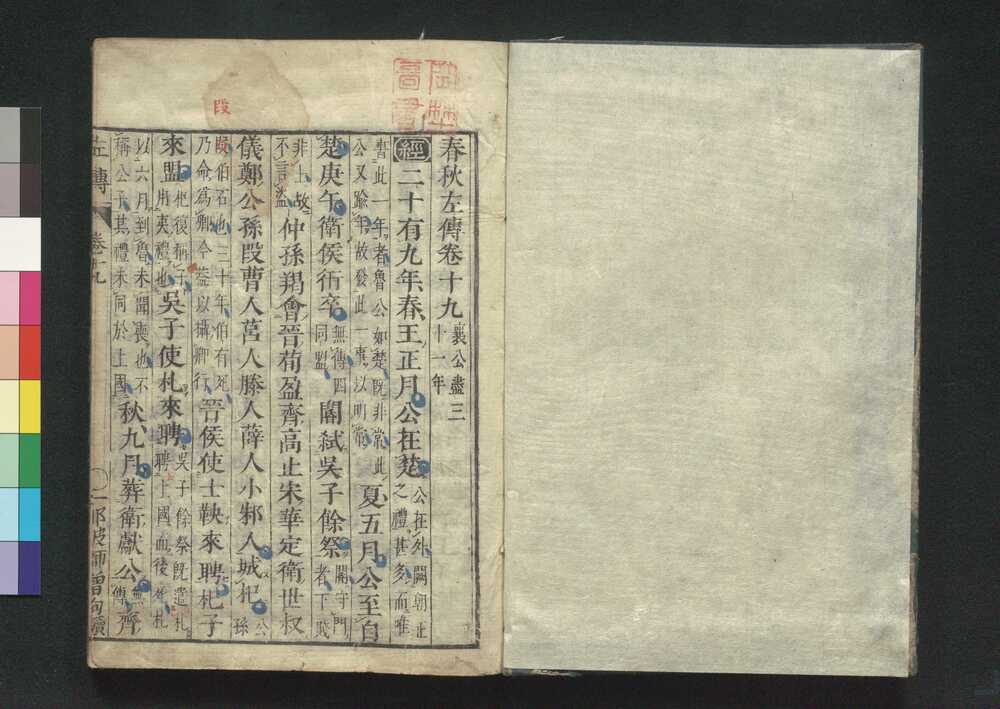 春秋左傳卷十九 襄公盡三十一年
經二十有九年春王正月公在楚 公在外闕朝正之禮甚多而唯
書此一年者魯公如楚既非常此公又踰年故發此一事以明常 夏五月公至自
楚庚午衛侯衎卒 無傳四同盟 閽弒吳子餘祭 閽守門者下賤
非士故不言盜 仲孫羯會晉荀盈齊高止宋華定衛世叔
儀鄭公孫段曹人莒人滕人薛人小邾人城杞 公孫
段伯石也三十年伯有死乃命爲卿今蓋以攝卿行 晉侯使士鞅來聘杞子
來盟 杞復稱子用夷禮也 吳子使札來聘 吳子餘祭既遣札聘上國而後死札
以六月到魯未聞喪也不稱公子其禮未同於上國 秋九月葬衛獻公 無傳 齊
左傳 卷十九 一 那波師曾句讀
段
岡